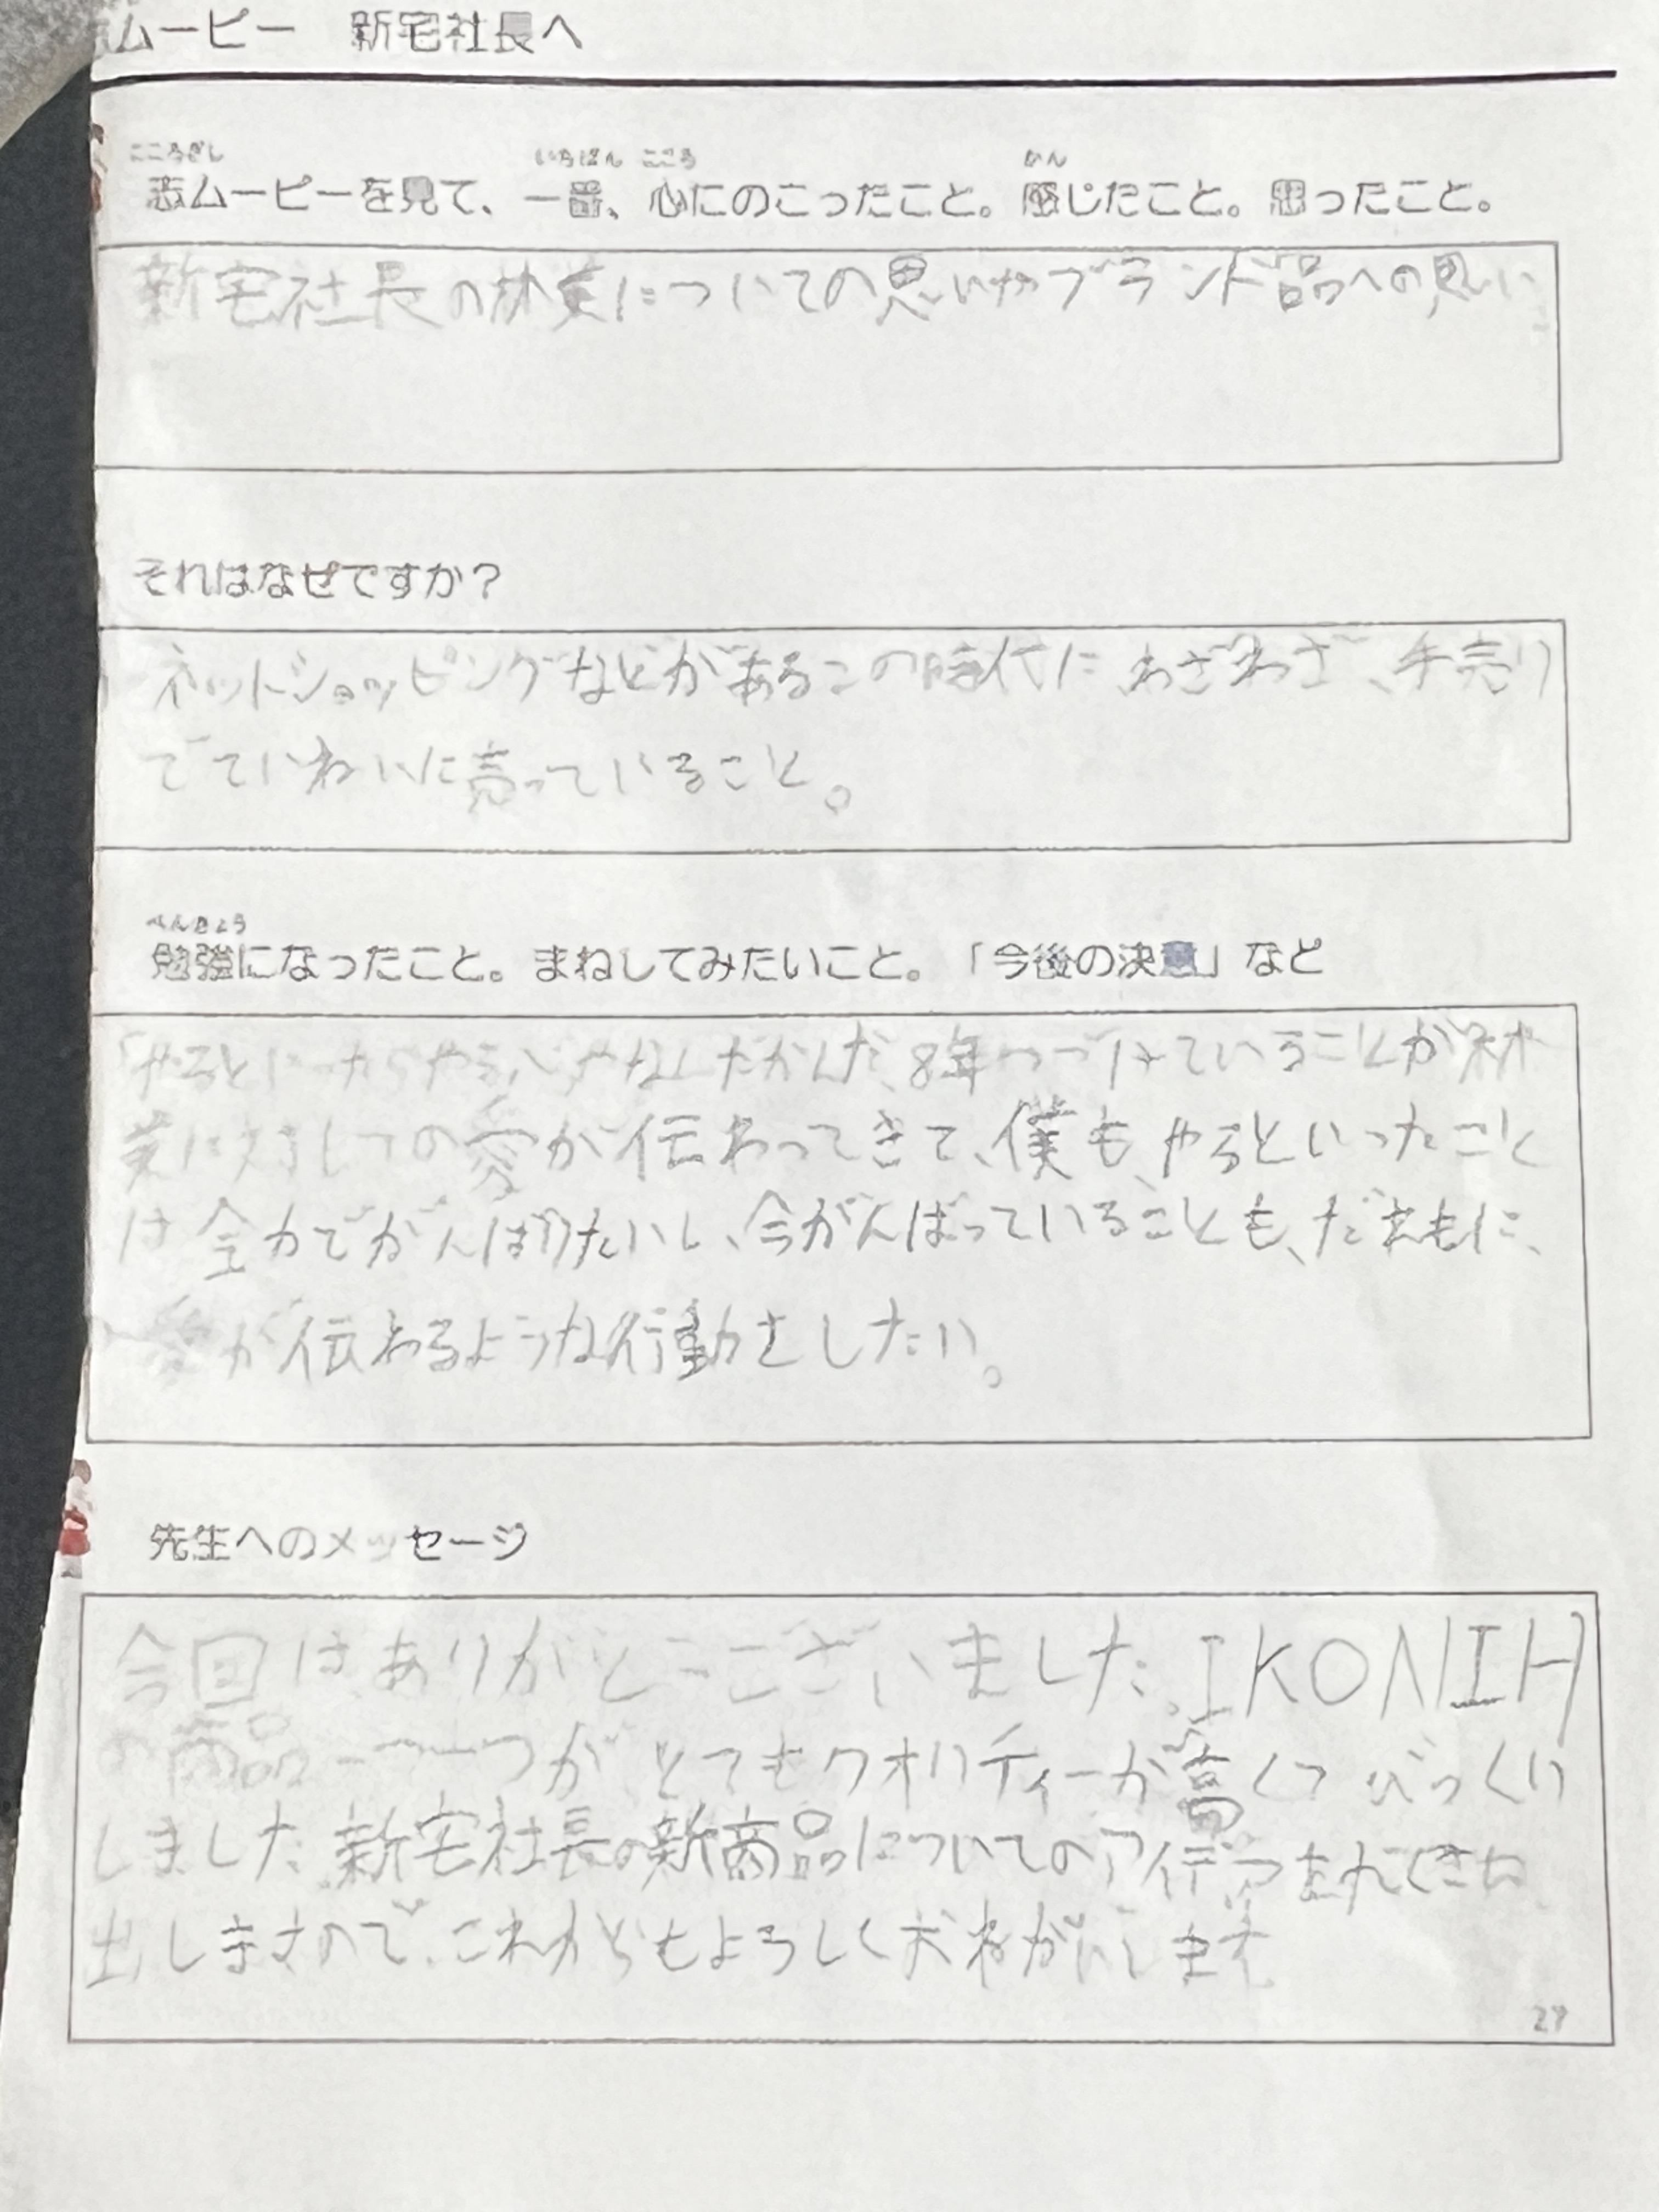 ムービー 新宅社長へ
こころざし いちばん こころ かん
志ムービーを見て、一番、心にのこったこと。感じたこと。思ったこと。
新宅社長の林業についての思いやブランド品への思い
それはなぜですか？
ネットショッピングなどがあるこの時代に わざわざ、手売り
でていねいに売っていること。
べんきょう
勉強になったこと。まねしてみたいこと。「今後の決意」など
8年つづけていることが林
業に対しての愛が伝わってきて、僕も、やるといったこと
は全力でがんばりたいし、今がんばっていることも、だれもに、
愛が伝わるような行動をしたい。
先生へのメッセージ
今回はありがとうございました。IKONIH
の商品一つ一つがとてもクオリティーが高くてびっくり
しました。新宅社長の新商品についてのアイデアを
出しますので、これからもよろしくおねがいします